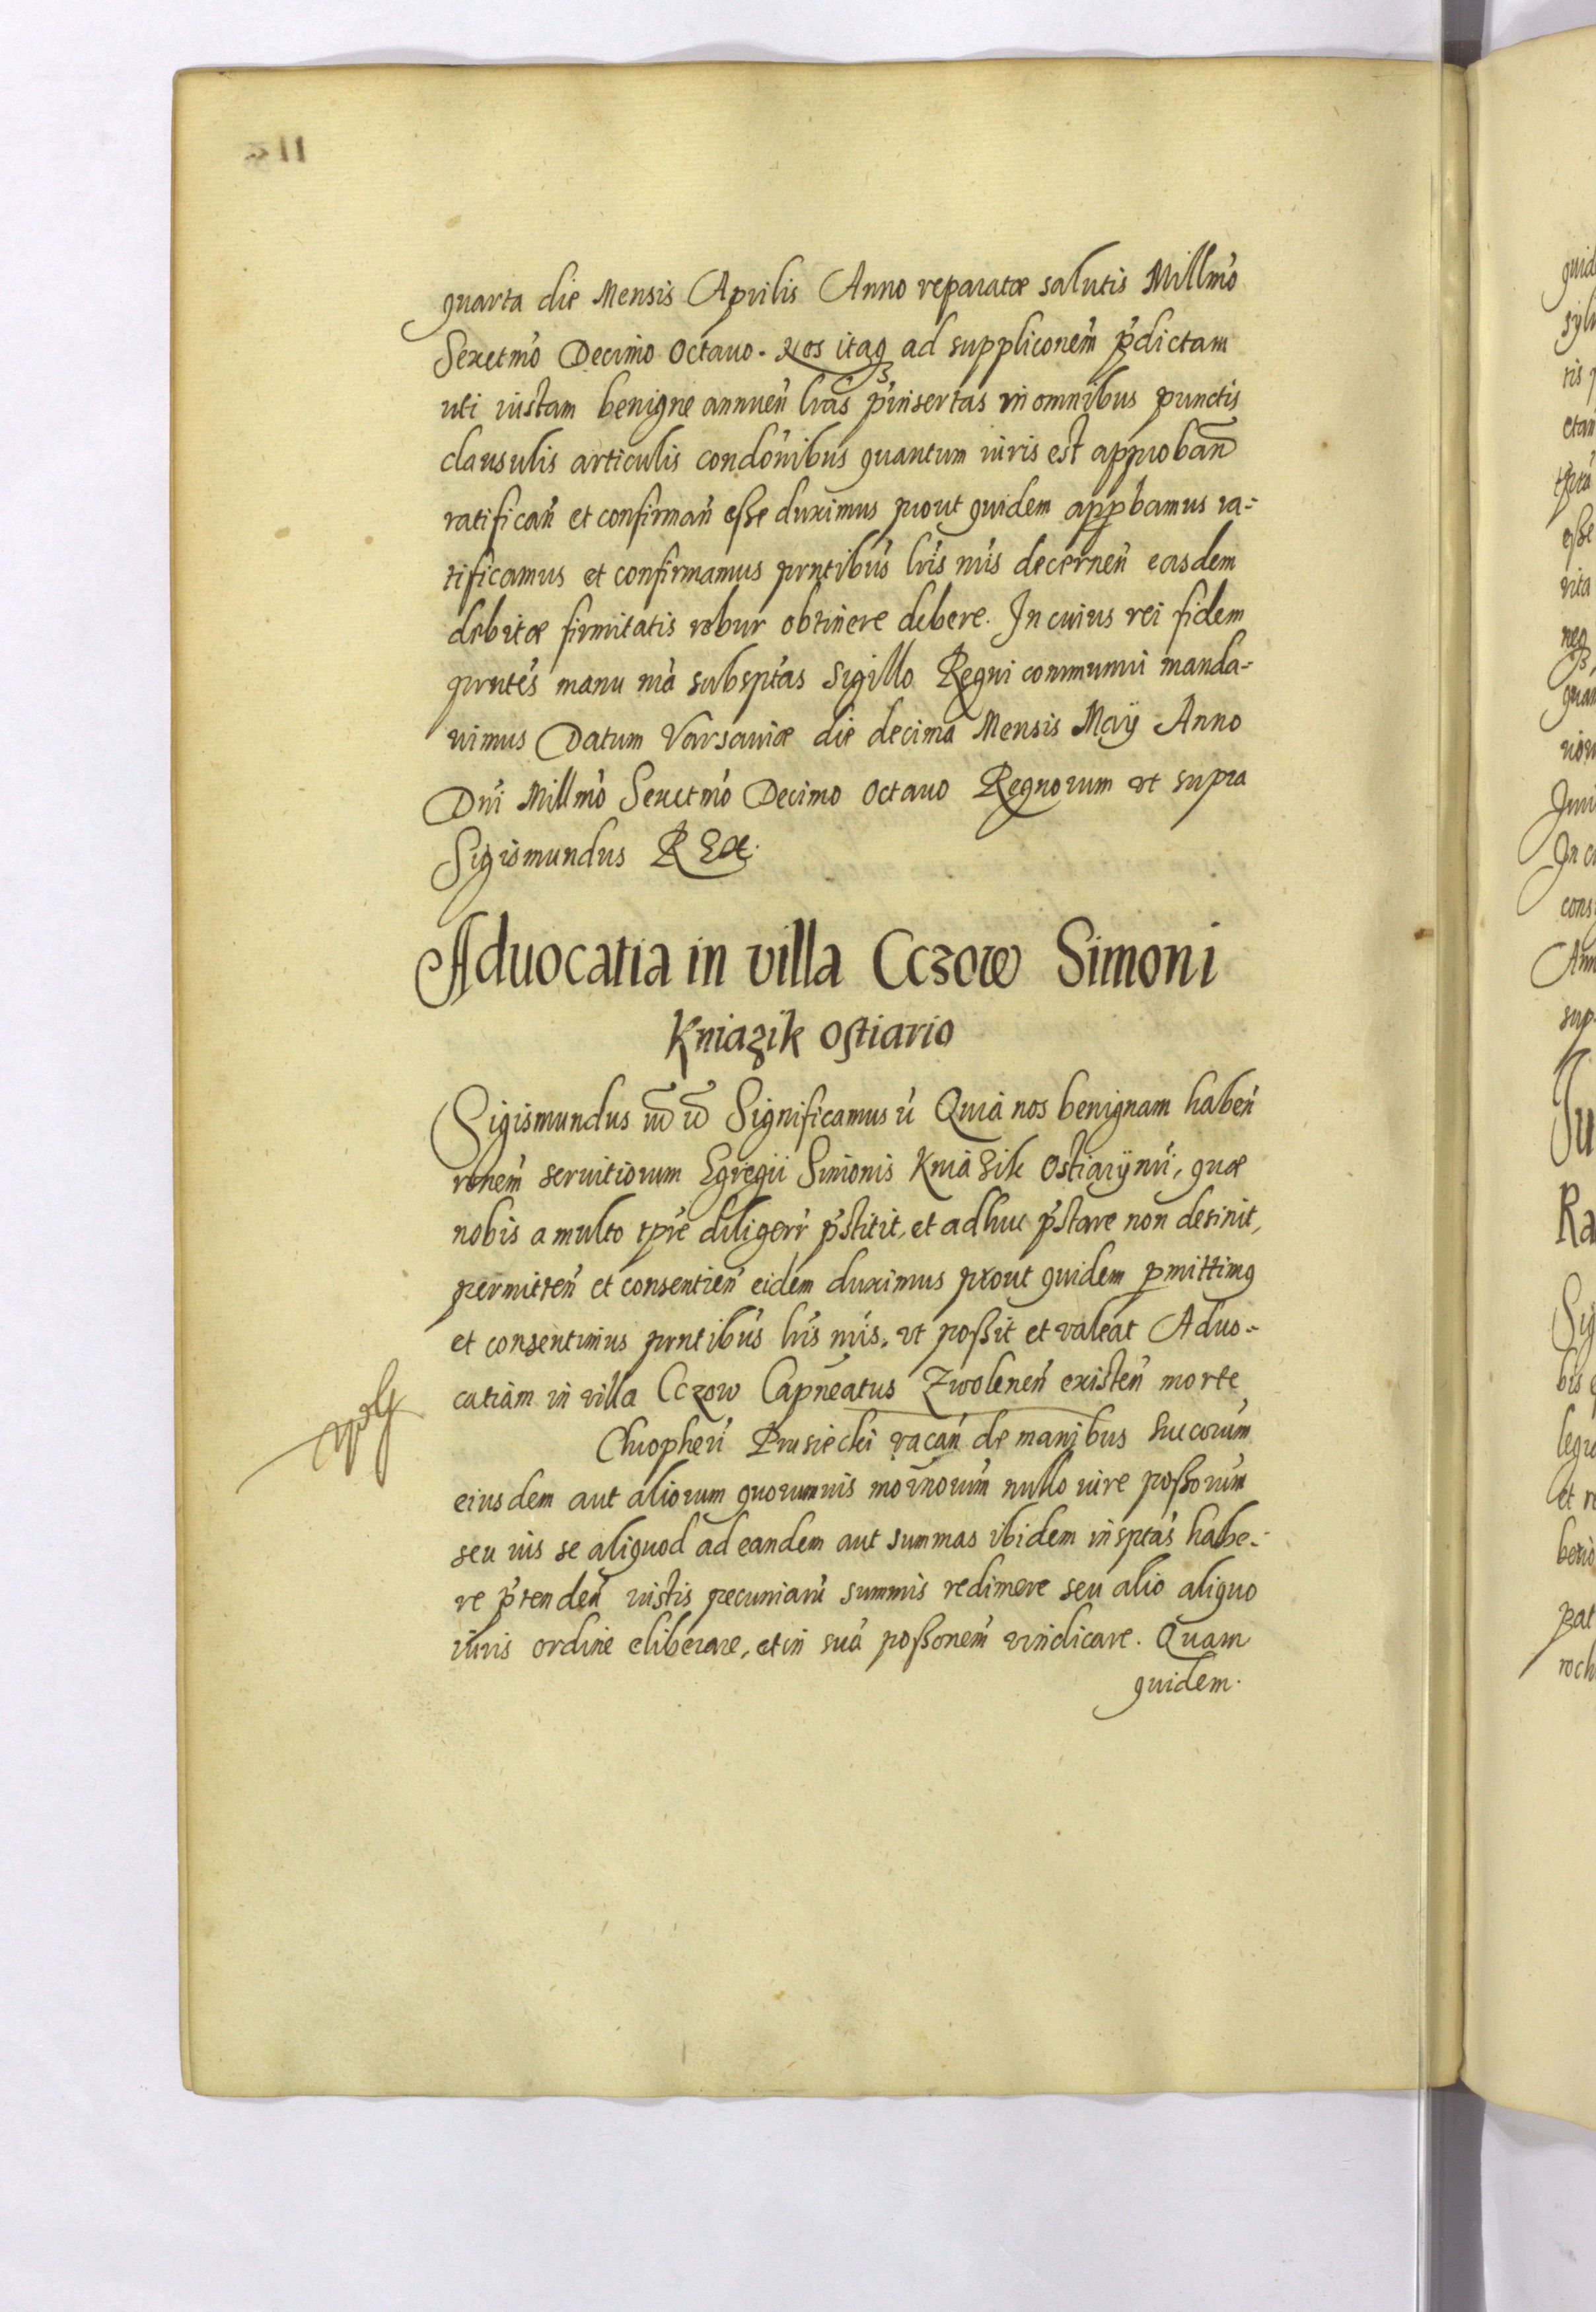 quarta die Mensis Aprilis Anno reparatæ salutis Millmo
Sexctmo Decimo Octauo. Nos itaq ad suppliconem pdictam
uti iustam benigne annuen lras pinsertas in omnibus punctis
clausulis articulis condonibus quantum iuris est approban
ratifican et confirman esse duximus prout quidem appbamus ra-
tificamus et confirmamus pntibus lris nris decernen easdem
debitæ firmitatis robur obtinere debere. In cuius rei fidem
prntes manu nra subsptas Sigillo Regni communiri manda-
uimus Datum Varsauiæ die decima Mensis Maÿ Anno
Dni Millmo Sexctmo Decimo Octauo Regnorum ut supra
Sigismundus REX.
Aduocatia in villa Cczow Simoni
Kniazik ostiario
Sigismundus Significamus Quia nos benignam haben
ronem seruitiorum Egregii Simonis Kniazik Ostiarÿ nri, quæ
nobis a multo tpre diligenr pstitit, et adhuc pstare non desinit,
permitten et consentien eidem duximus prout quidem pmittimq
et consentimus prntibus lris nris, ut possit et valeat Aduo-
catiam in villa Cczow Capneatus Zwolenen existen morte
Chropheri Prusiecki vacan de manibus Succorum
eiusdem aut aliorum quorumuis modrnorum nullo iure possorum
seu ius se aliquod ad eandem aut summas ibidem insptas habe-
re ptenden iustis pecuniaru summis redimere seu alio aliquo
iuris ordine eliberare, et in sua possonem vindicare. Quam
quidem.